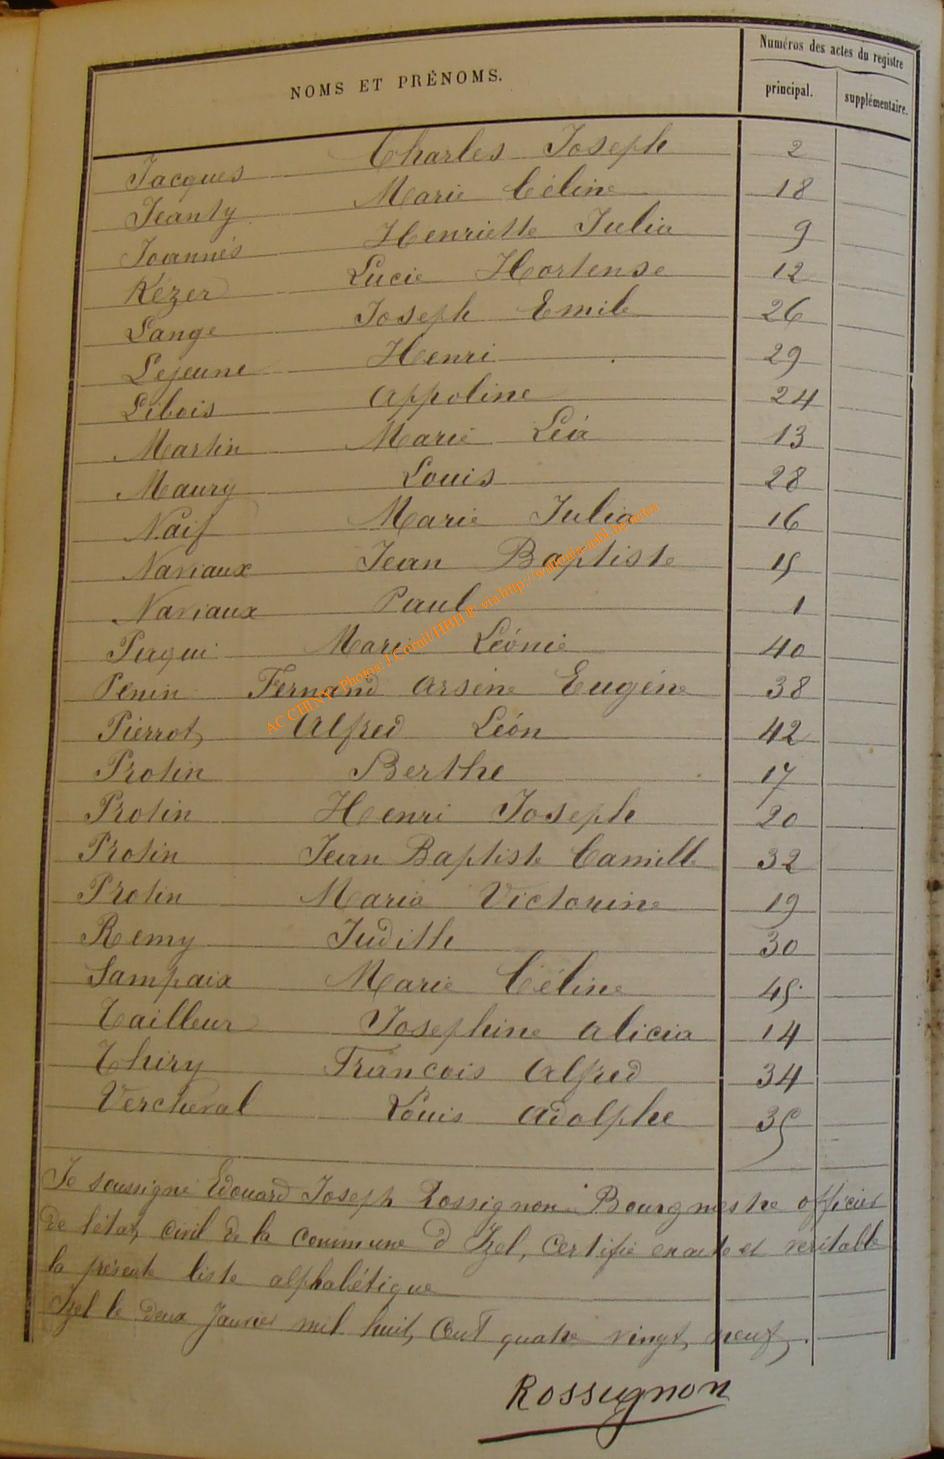 NOMS ET PRÉNOMS.
Numéros des actes du registre
principal. supplémentaire.
Jacques Charles Joseph 2
Jeanty Marie Céline 18
Joannés Henriette Julia 9
Kézer Lucie Hortense 12
Lange Joseph Emile 26
Lejeune Henri 29
Libois Appoline 24
Martin Marie Léa 13
Maury Louis 28
Naif Marie Julia 16
Naviaux Jean Baptiste 15
Naviaux Paul 1
Marie Léonie 40
Penin Fernand Arsène Eugène 38
Pierrot Alfred Léon 42
Protin Berthe 17
Protin Henri Joseph 20
Protin Jean Baptiste Camille 32
Protin Maria Victorine 19
Remy Judith 30
Sampaix Marie Céline 45
Tailleur Josephine Alicia 14
Thiry Francois Alfred 34
Vercheval Louis Adolphe 35
Je soussigné Edouard Joseph Rossignon Bourgmestre officier
de l'état civil de la commune d'Izel, certifie exacte et veritable
la présente liste alphabétique
Izel le deux Janvier mil huit Cent quatre vingt neuf.
Rossignon